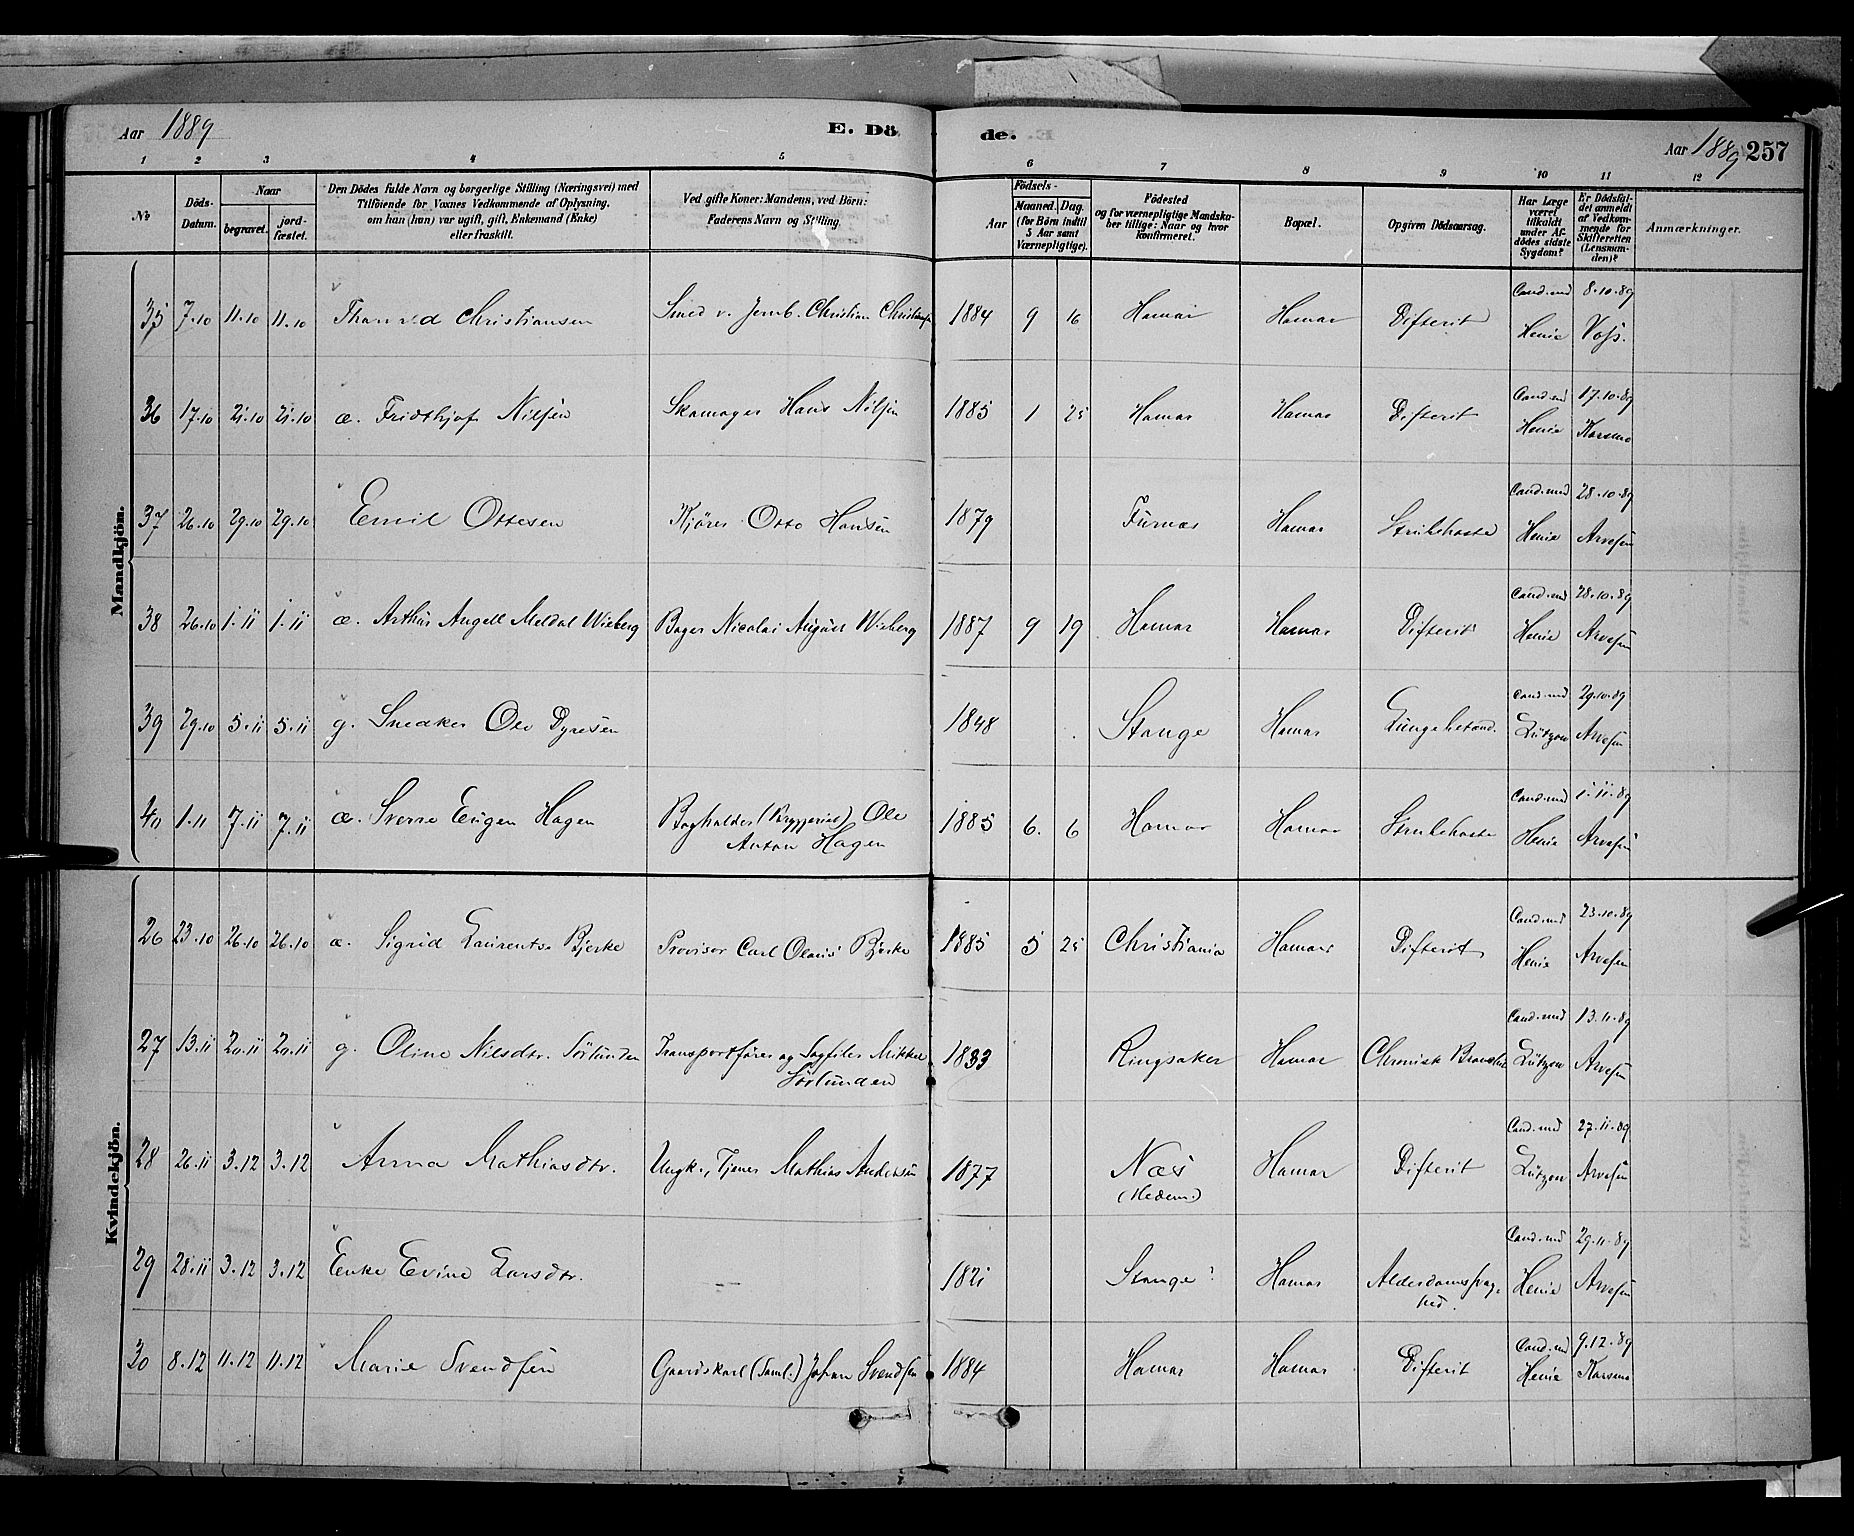 Aar 1889 E. Dö de. Aar 1889 257
1 2 3 4 5 6 7 8 9 10 11 12
No
Döds-Datum.
Naar
begravet.
jordfæstet.
Den Dödes fulde Navn og borgerlige Stilling (Næringsvei) med
Tilföiende for Voxnes Vedkommende af Oplysning,
om han (hun) var ugift, gift, Enkemand (Enke)
eller fraskilt.
Ved gifte Koner: Mandens, ved Börn:
Faderens Navn og Stilling
Födsels-
Aar
Maaned. Dag.
(for Börn indtil
5 Aar samt
Værnepligtige).
Födested
og for værnepligtige Mandskaber
tillige: Naar og hvor
konfirmeret.
Bopæl.
Opgiven Dödsaarsag.
Har Læge
været
tilkaldt
under Afdödes
sidste
Sygdom?
Er Dödsfaldet
anmeldt
af Vedkommende
for
Skifteretten
(Lensmanden)?
Anmærkninger.
Mandkjön.
35 7.10 11.10 11.10 Christiansen Smed v. Jernb. Christian Christiansen 1884 9 16 Hamar Hamar Difterit Cand.med Henie 8.10.89 Voss.
36 17.10 21.10 21.10 æ. Fridthjof Nilsen Skomager Hans Nilsen 1885 1 25 Hamar Hamar Difterit Cand.med Henie 17.10.89 Karsmo
37 26.10 29.10 29.10 Emil Ottesen Kjörer Otto Hansen 1879 Furnæs Hamar Strubehoste Cand.med Henie 28.10.89 Arvesen
38 26.10 1.11 1.11 æ. Arthur Angell Meldal Wieberg Bager Nicolai August Wieberg 1887 9 19 Hamar Hamar Difterit Cand.med Henie 28.10.89 Arvesen
39 29.10 5.11 5.11 g. Snedker Ole Dyresen 1848 Stange Hamar Lungebetænd. Cand.med Lützow 29.10.89 Arvesen
40 1.11 7.11 7.11 æ. Sverre Eugen Hagen Bogholder (Bryggeriet) Ole
Anton Hagen 1885 6. 6 Hamar Hamar Strubehoste Cand.med Henie 1.11.89 Arvesen
Kvindekjön.
26 23.10 26.10 26.10 æ. Sigrid Laurentse Bjerke Provisor Carl Olaus Bjerke 1885 5 25 Christiania Hamar Difterit Cand.med Henie 23.10.89 Arvesen
27 13.11 20.11 20.11 g. Oline Nilsdtr. Sörlunden Transportförer og Sagfiler Mikkel
Sörlunden 1833 Ringsaker Hamar Chronisk Cand.med Lützow 13.11.89 Arvesen
28 26.11 3.12 3.12 Anna Mathiasdtr. Ungk., Tjener Mathias Andersen 1877 Næs
(Hedem.) Hamar Difterit Cand.med Lützow 27.11.89 Arvesen
29 28.11 3.12 3.12 Enke Evine Larsdtr. — 1821 Stange? Hamar Alderdomssvaghed. Cand.med Henie 29.11.89 Arvesen
30 8.12 11.12 11.12 Marie Svendsen Gaardskarl (Saml.) Johan Svendsen 1884 Hamar Hamar Difterit Cand.med Henie 9.12.89 Karsmo